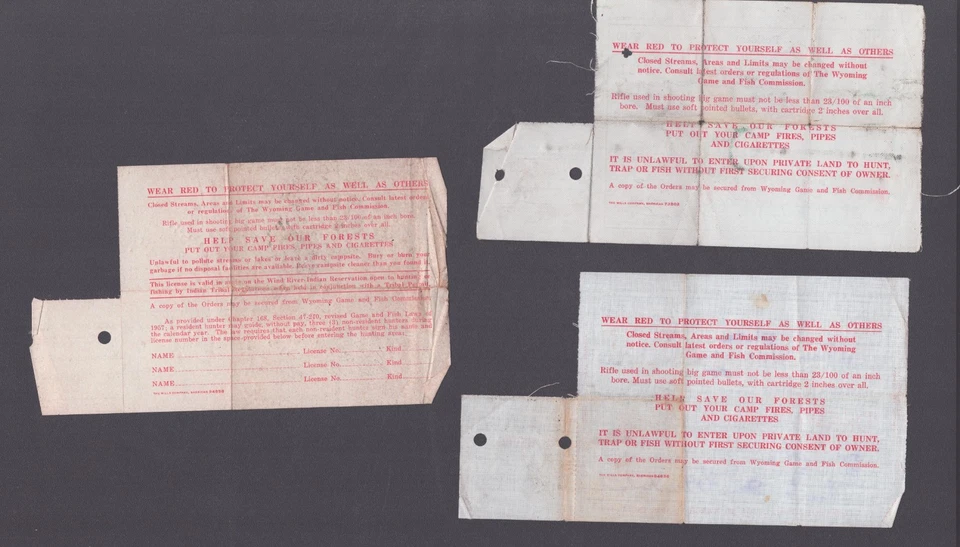 WEAR RED TO PROTECT YOURSELF AS WELL AS OTHERS
Closed Streams, Areas and Limits may be changed without notice. Consult latest orders
or regulations of The Wyoming Game and Fish Commission.
Rifle used in shooting big game must not be less than 23/100 of an inch bore.
Must use soft pointed bullets, with cartridge 2 inches over all.
HELP SAVE OUR FORESTS
PUT OUT YOUR CAMP FIRES, PIPES AND CIGARETTES
Unlawful to pollute streams or lakes or leave a dirty campsite. Bury or burn your
garbage if no disposal facilities are available. Leave campsite cleaner than you found it.
This license is valid in state on the Wind River Indian Reservation open to hunting or
fishing by Indian Tribal Regulations when held in conjunction with a Tribal
A copy of the Orders may be secured from Wyoming Game and Fish Commission
As provided under Chapter 168, Section 47-240, revised Game and Fish Laws of
1957; a resident hunter may guide, without pay, three (3) non-resident hunters during
the calendar year. The law requires that each non-resident hunter sign his name and
license number in the space provided below before entering the hunting areas.
NAME License No. Kind
NAME License No. Kind
NAME License No. Kind
WEAR RED TO PROTECT YOURSELF AS WELL AS OTHERS
Closed Streams, Areas and Limits may be changed without
notice. Consult latest orders or regulations of The Wyoming
Game and Fish Commission.
Rifle used in shooting big game must not be less than 23/100 of an inch
bore. Must use soft pointed bullets, with cartridge 2 inches over all.
HELP SAVE OUR FORESTS
PUT OUT YOUR CAMP FIRES, PIPES
AND CIGARETTES
IT IS UNLAWFUL TO ENTER UPON PRIVATE LAND TO HUNT,
TRAP OR FISH WITHOUT FIRST SECURING CONSENT OF OWNER.
A copy of the Orders may be secured from Wyoming Game and Fish Commission.
WEAR RED TO PROTECT YOURSELF AS WELL AS OTHERS
Closed Streams, Areas and Limits may be changed without
notice. Consult latest orders or regulations of The Wyoming
Game and Fish Commission.
Rifle used in shooting big game must not be less than 23/100 of an inch
bore. Must use soft pointed bullets, with cartridge 2 inches over all.
HELP SAVE OUR FORESTS
PUT OUT YOUR CAMP FIRES, PIPES
AND CIGARETTES
IT IS UNLAWFUL TO ENTER UPON PRIVATE LAND TO HUNT,
TRAP OR FISH WITHOUT FIRST SECURING CONSENT OF OWNER.
A copy of the Orders may be secured from Wyoming Game and Fish Commission.